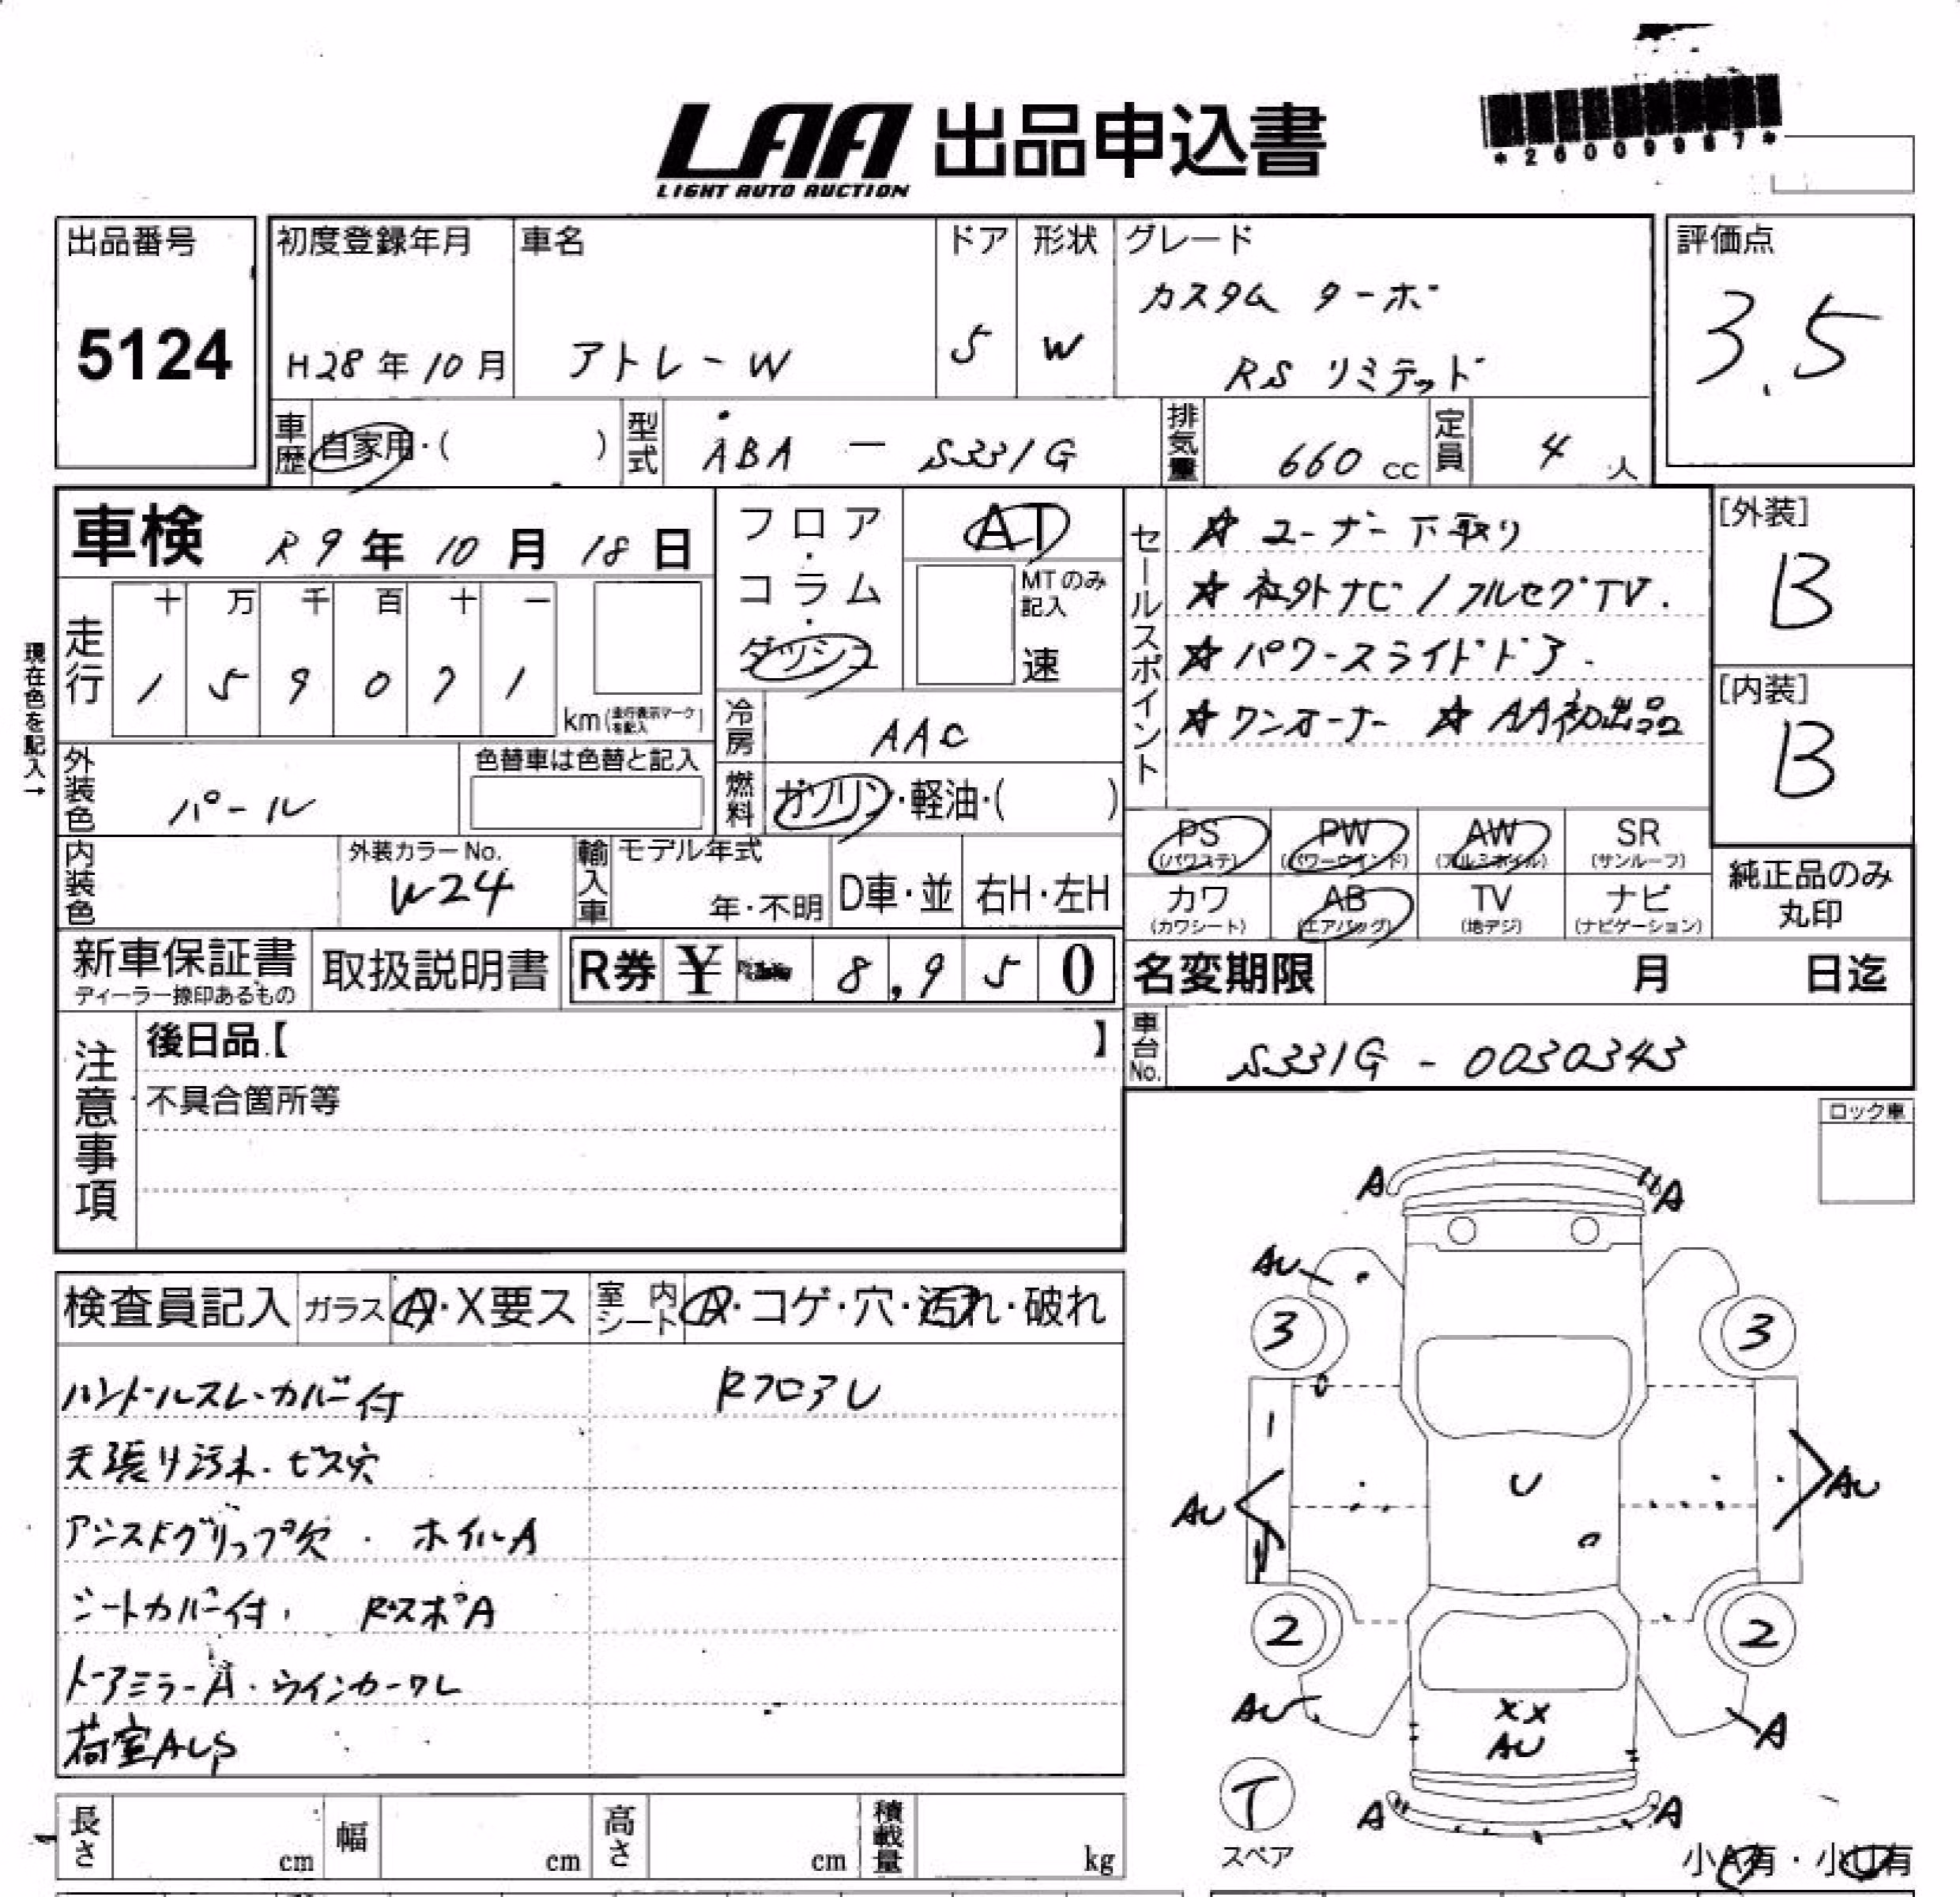 LAA 出品申込書
LIGHT AUTO AUCTION
*26009987*
出品番号
5124
初度登録年月
H28年10月
車名
アトレーW
ドア
5
形状
W
グレード
カスタム ターボ
RS リミテッド
評価点
3.5
車歴
自家用・( )
型式
ABA - S331G
排気量
660 cc
定員
4 人
車検 R9年10月18日
フロア・コラム・ダッシュ
AT
MTのみ記入
速
セールスポイント
☆ ユーザー下取り
☆ 社外ナビ/フルセグTV.
☆ パワースライドドア.
☆ ワンオーナー ☆ AA初出品
[外装]
B
[内装]
B
現在色を記入→
走行
十 万 千 百 十 一
1 5 9 0 7 1
km(走行表示マークを記入)
冷房
AAC
外装色
パール
色替車は色替と記入
燃料
ガソリン・軽油・( )
内装色
外装カラーNo.
W24
輸入車
モデル年式
年・不明
D車・並
右H・左H
PS (パワステ)
PW (パワーウインド)
AW (アルミホイル)
SR (サンルーフ)
カワ (カワシート)
AB (エアバッグ)
TV (地デジ)
ナビ (ナビゲーション)
純正品のみ丸印
新車保証書
ディーラー捺印あるもの
取扱説明書
R券 ¥ 8,950
名変期限 月 日迄
車台No.
S331G - 0030343
注意事項
後日品【 】
不具合箇所等
ロック車
検査員記入
ガラス A・X要ス
室内シート A・コゲ・穴・汚れ・破れ
ハンドルスレ・カバー付
RフロアU
天張り汚れ・ビス穴
アシストグリップ欠・ホイルA
シートカバー付、RスポA
ドアミラーA・ウインカーワレ
荷室AUS
A A
AU
3 3
AU U AU
2 2
AU XX A
AU
T
A A
スペア
小A有・小U有
長さ cm
幅 cm
高さ cm
積載量 kg